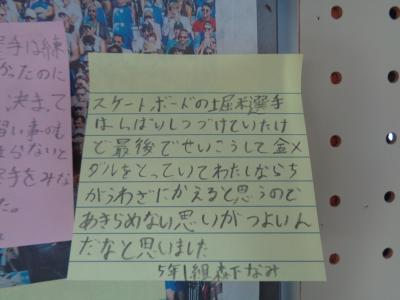 手は練
かったのに
決まって
習い事も
スケートボードの堀米選手
はしっぱいしつづけていたけ
ど最後でせいこうして金メ
ダルをとっていてわたしならち
がうわざにかえると思うので
あきらめない思いがつよいん
だなと思いました
5年1組森下なみ